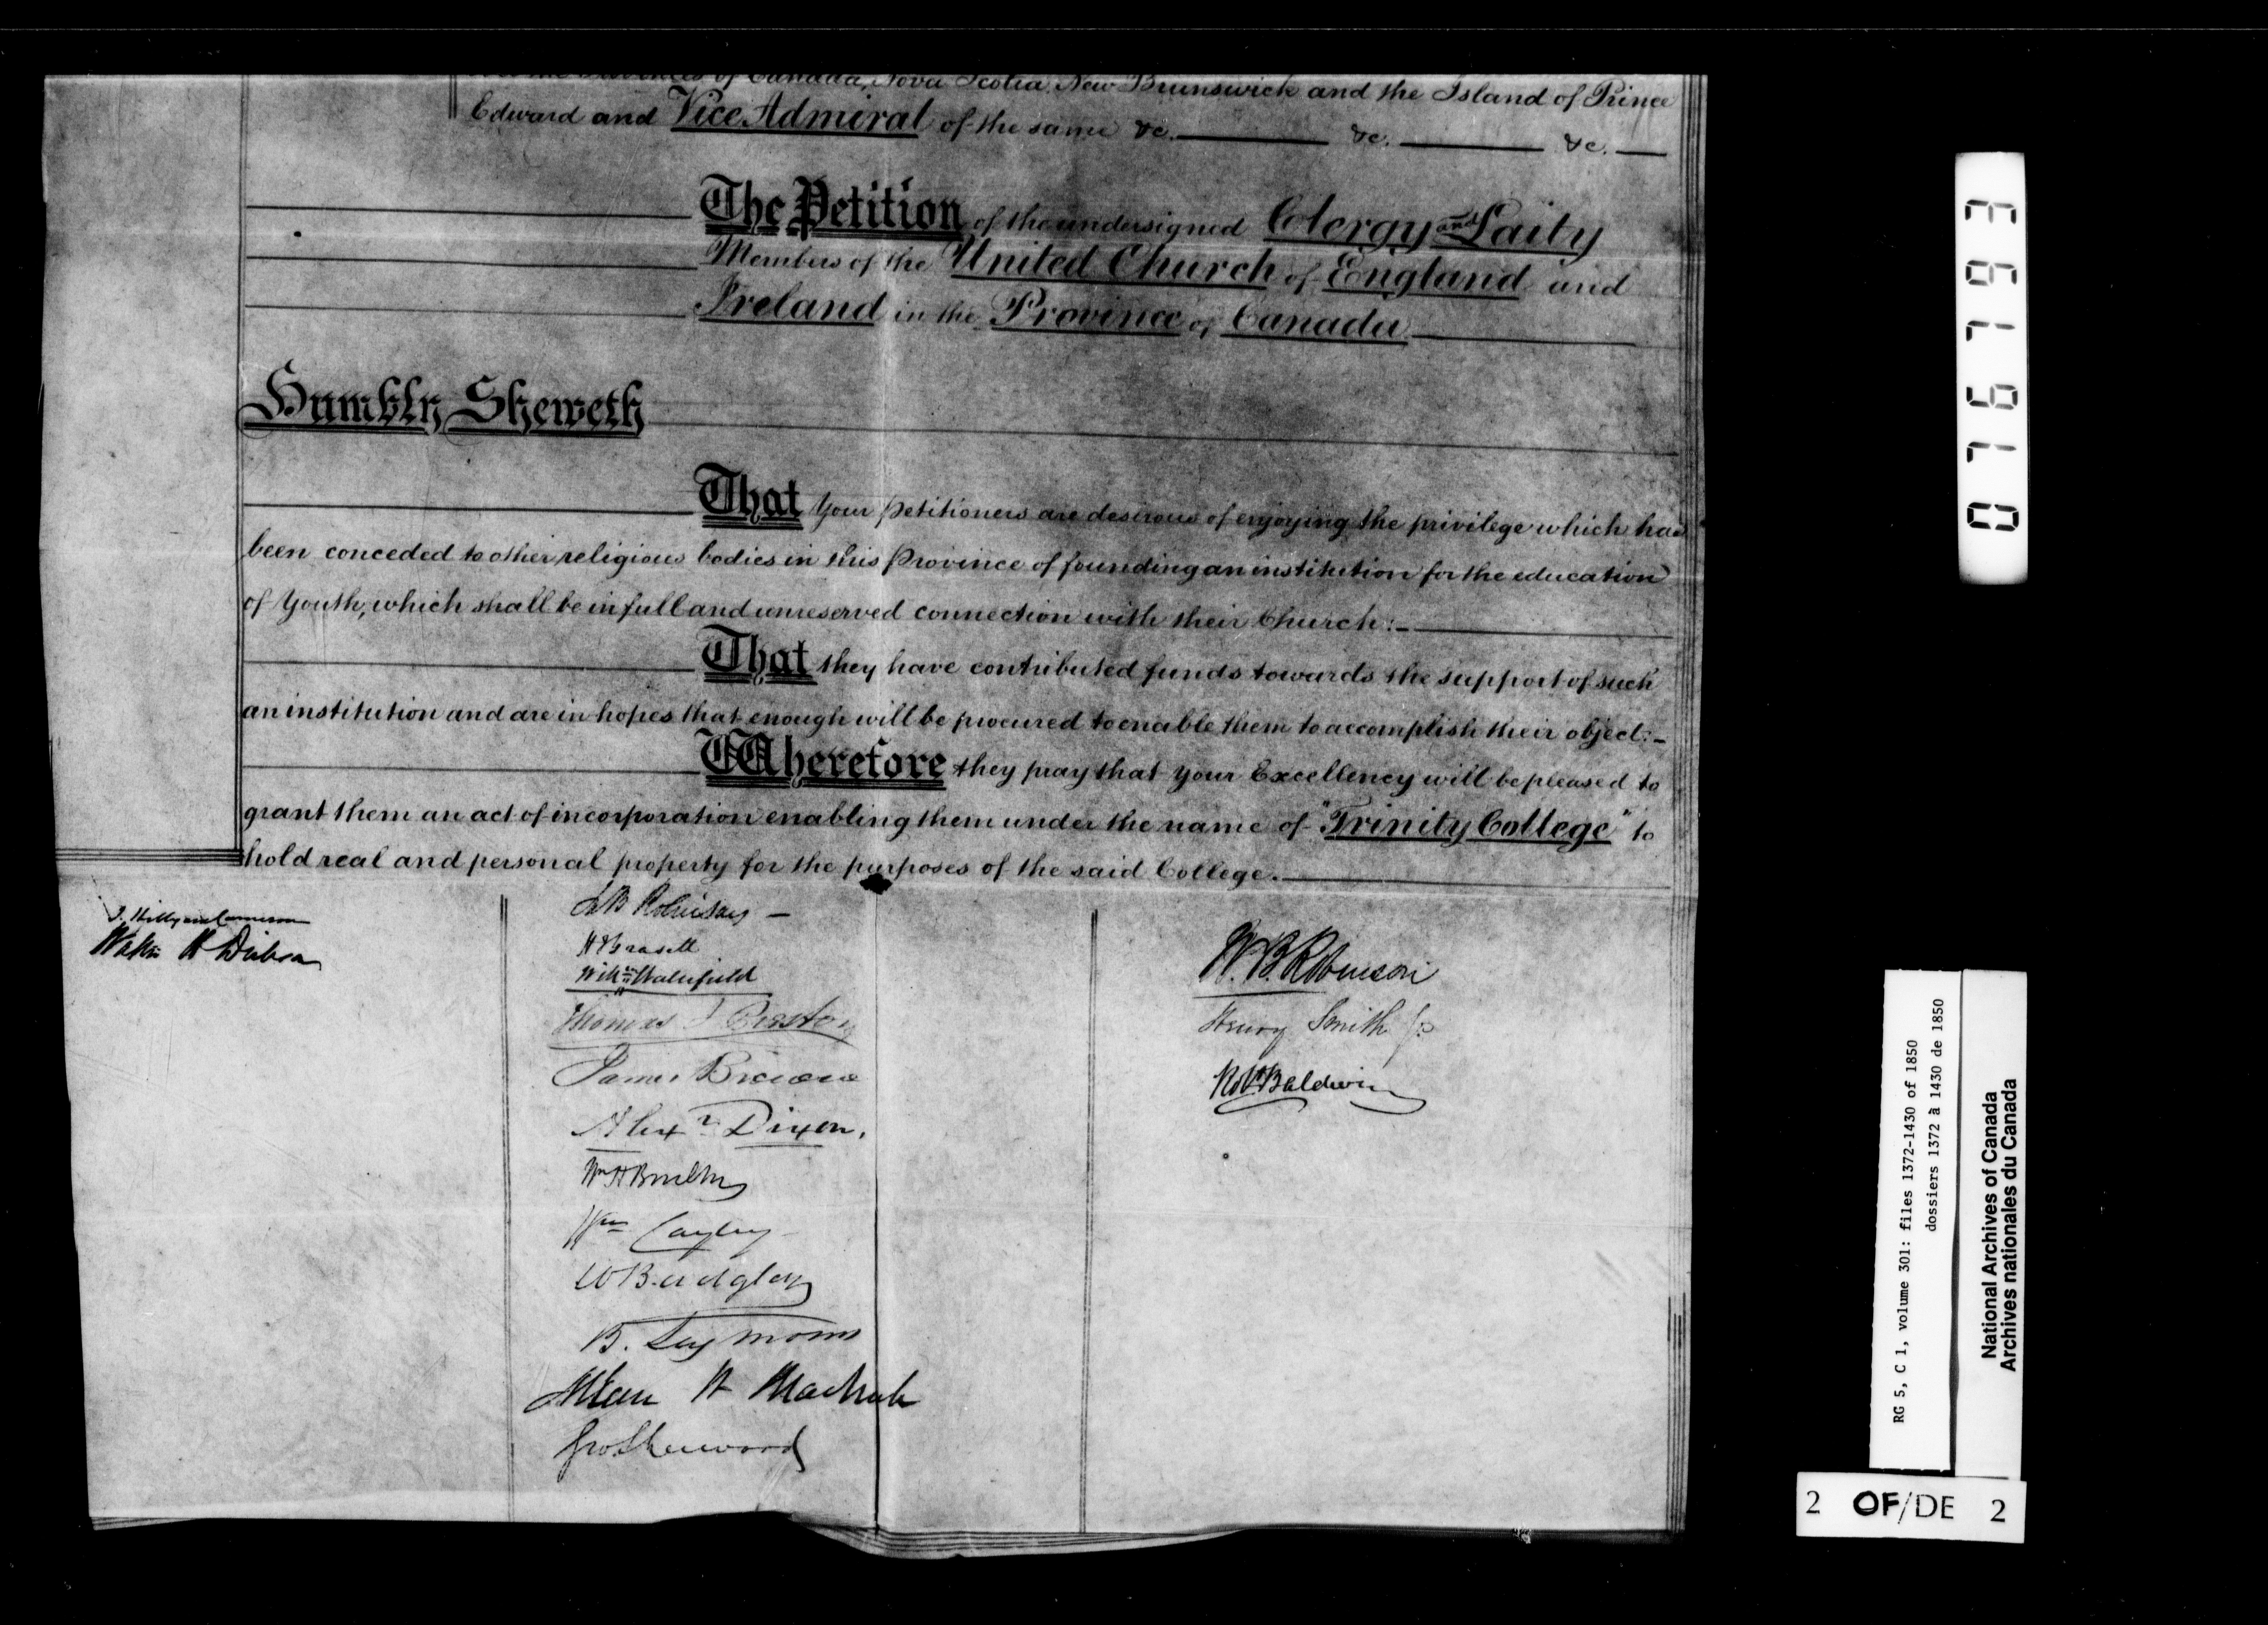 Provinces of Canada, Nova Scotia, New Brunswick and the Island of Prince
Edward and Vice Admiral of the same &c. &c. &c.
The Petition of the undersigned Clergy and Laity
Members of the United Church of England and
Ireland in the Province of Canada
Humbly Sheweth
That Your Petitioners are desirous of enjoying the privilege which has
been conceded to other religious bodies in this Province of founding an institution for the education
of Youth, which shall be in full and unreserved connection with their Church:-
That they have contributed funds towards the support of such
an institution and are in hopes that enough will be procured to enable them to accomplish their object:-
Wherefore they pray that your Excellency will be pleased to
grant them an act of incorporation enabling them under the name of "Trinity College" to
hold real and personal property for the purposes of the said College.
J. Hillyard Cameron
Walter H Dickson
Robinson
H J Grasett
Willm Wakefield
Thomas J Preston
James Browne
Alexr Dixon.
Wm H Boulton
Wm Cayley
W Badgley
B. Seymour
Allan N MacNab
Geo Sherwood
W. B. Robinson
Henry Smith Jr
Robt Baldwin
076793
RG 5, C 1, volume 301: files 1372-1430 of 1850
dossiers 1372 à 1430 de 1850
National Archives of Canada
Archives nationales du Canada
2 OF/DE 2